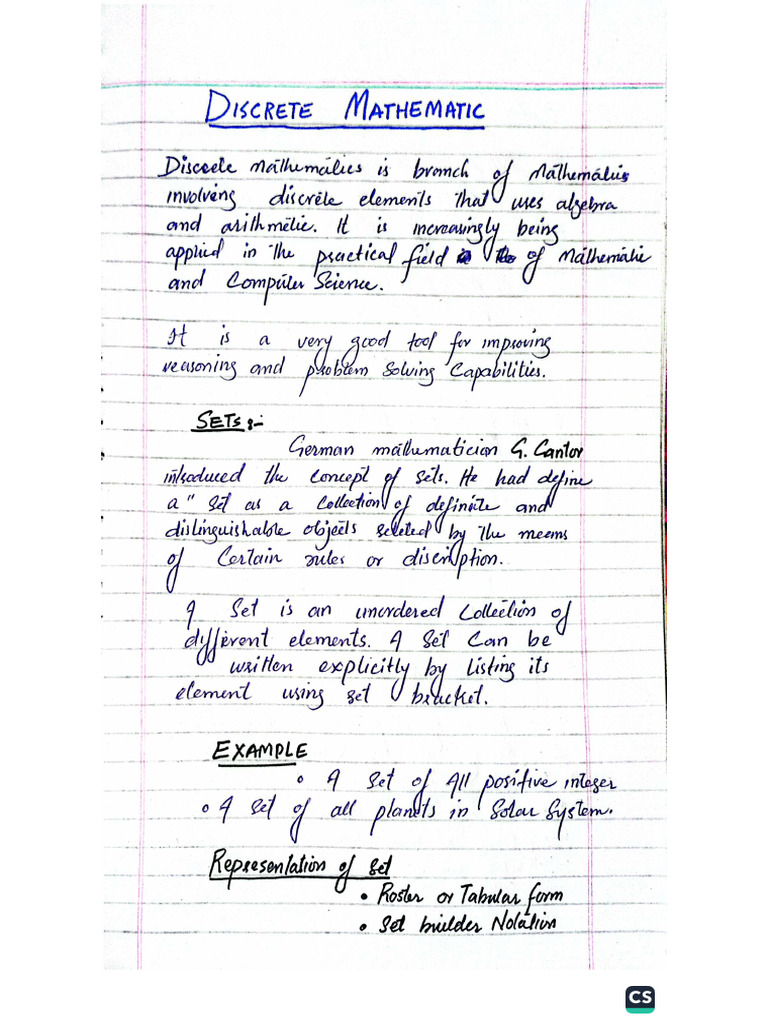 DISCRETE MATHEMATIC
Discrete mathematics is branch of Mathematics
involving discrete elements that uses algebra
and arithmetic. It is increasingly being
applied in the practical field of Mathematic
and Computer Science.
It is a very good tool for improving
reasoning and problem solving Capabilities.
SETS :-
German mathematician G. Cantor
introduced the concept of sets. He had define
a " set as a collection of definite and
distinguishable objects seleted by the meems
of Certain rules or discription.
A Set is an unordered collection of
different elements. A set can be
written explicitly by listing its
element using set bracket.
EXAMPLE
• A set of All positive integer
• A set of all planets in Solar System.
Representation of set
• Roster or Tabular form
• Set builder Notation
CS